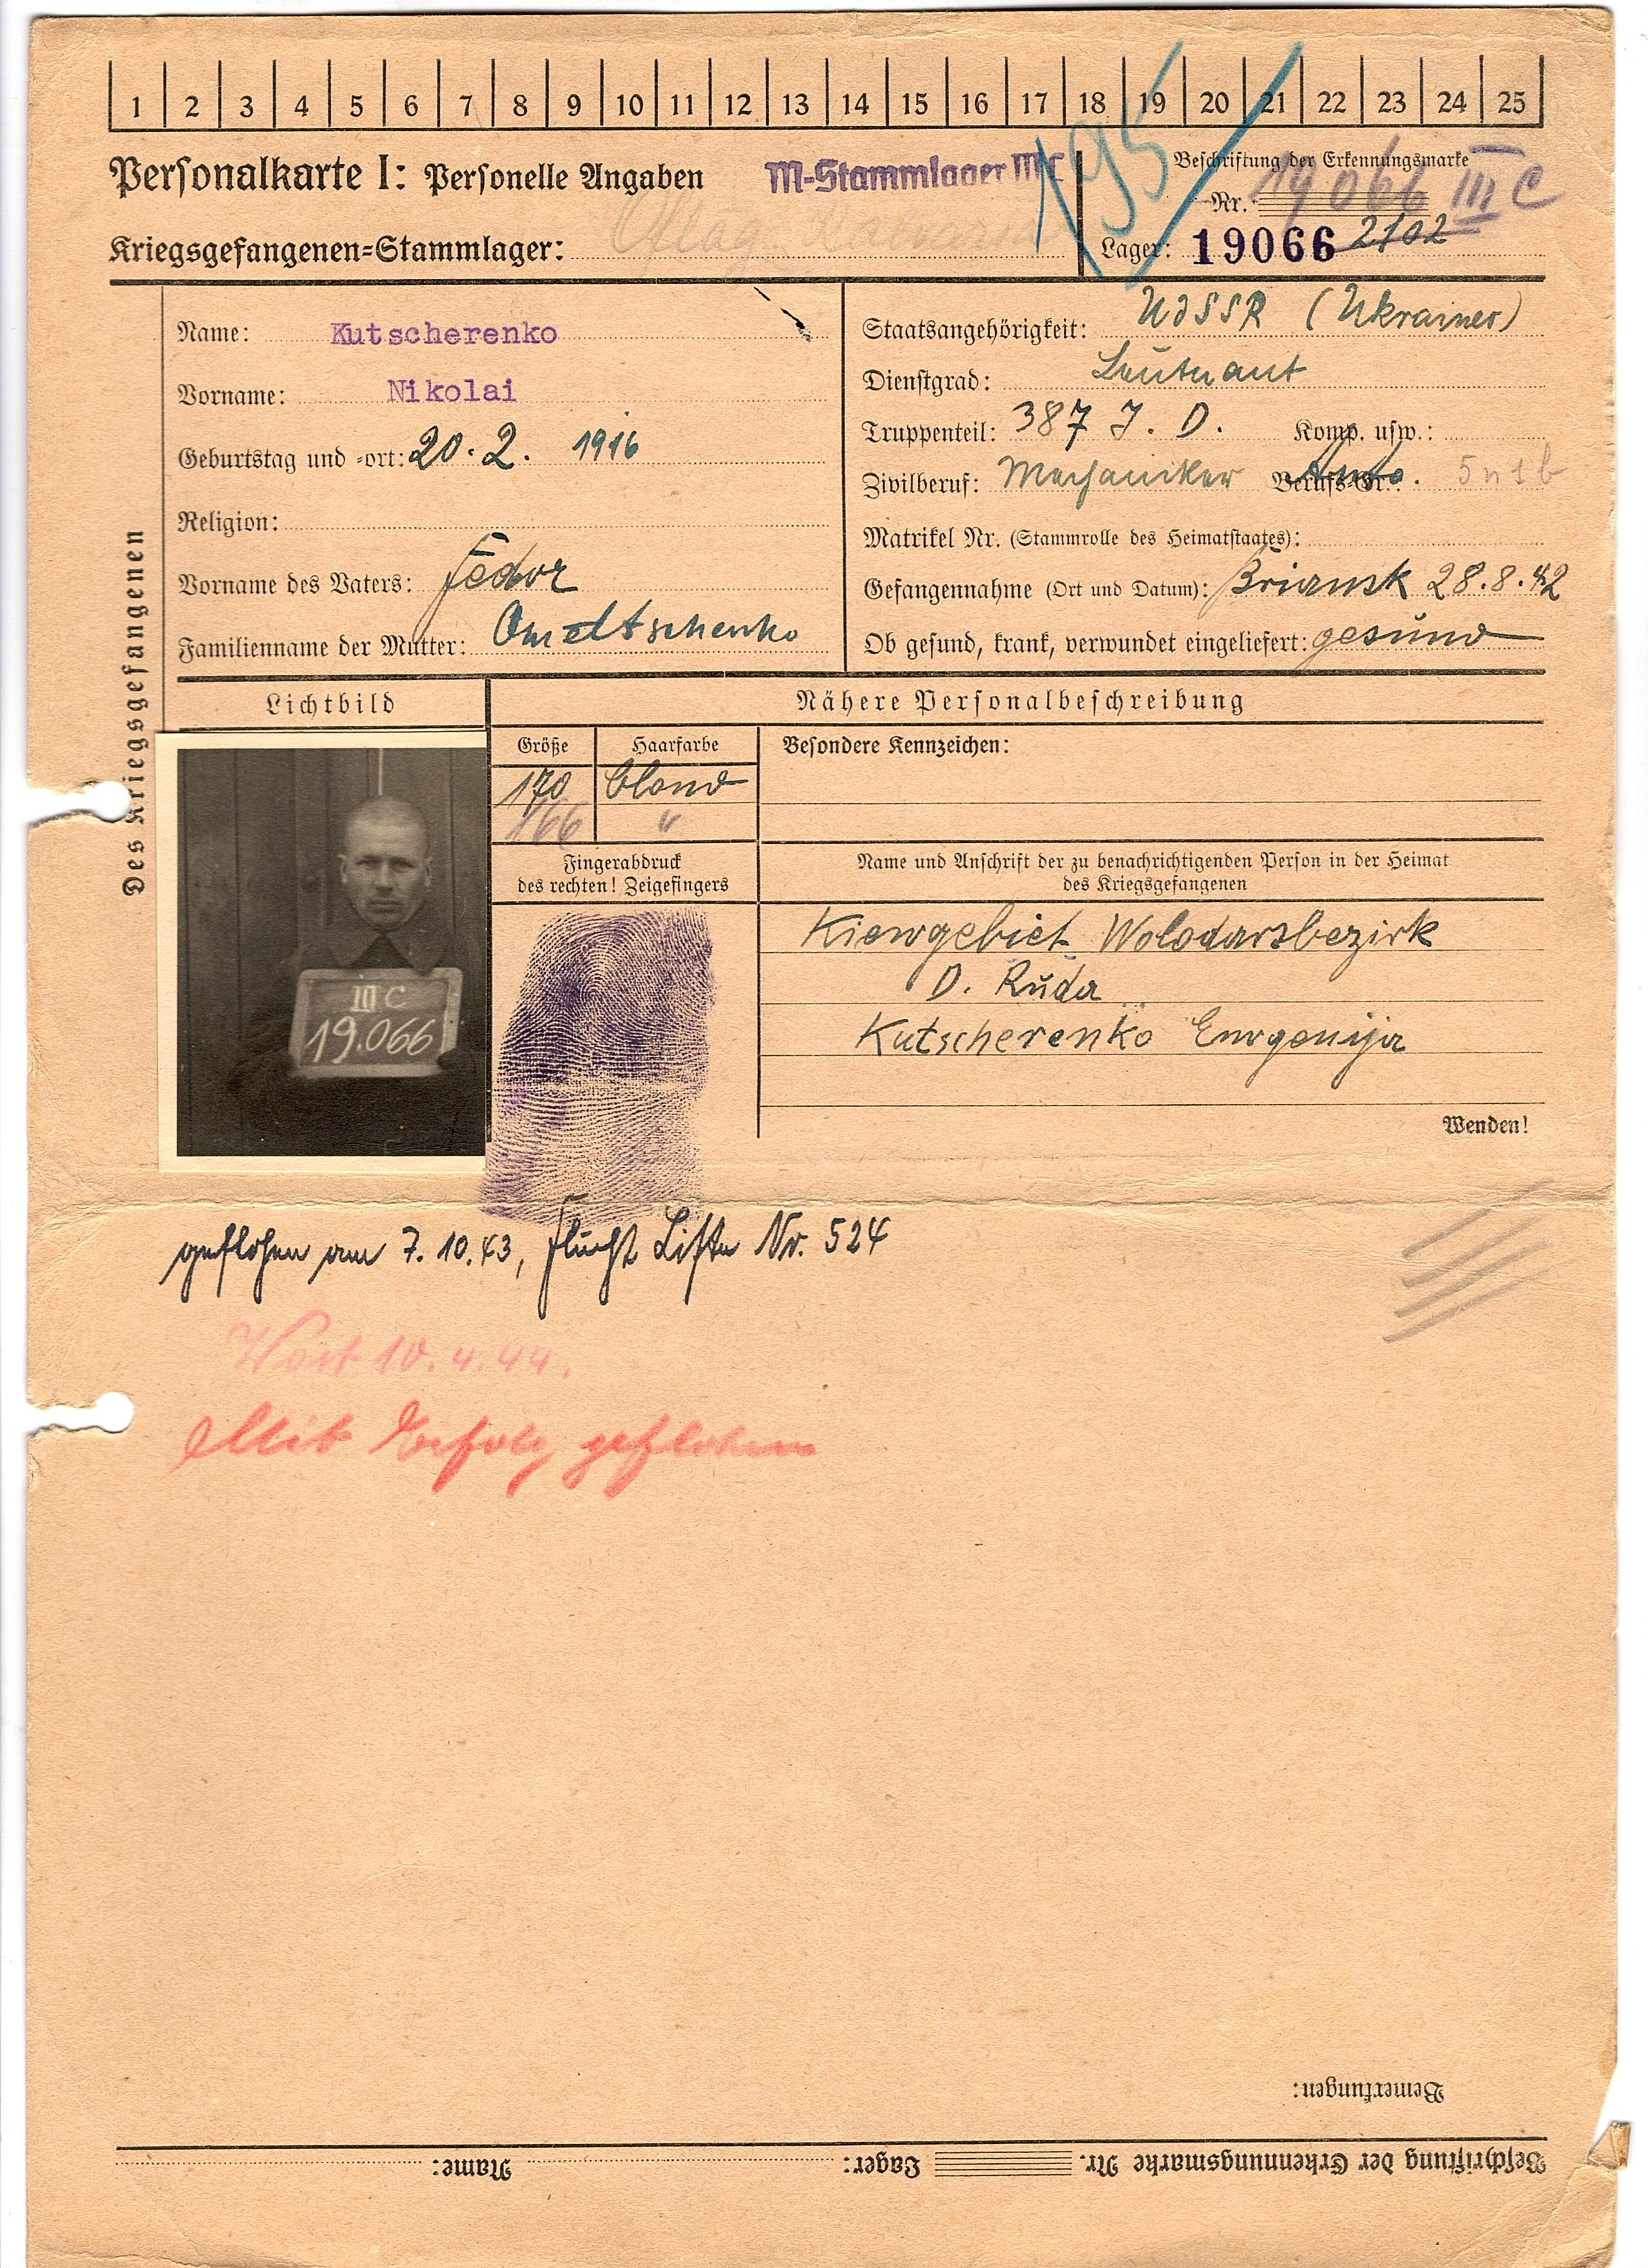 1 2 3 4 5 6 7 8 9 10 11 12 13 14 15 16 17 18 19 20 21 22 23 24 25
195
Personalkarte I: Personelle Angaben
M-Stammlager III C
Beschriftung der Erkennungsmarke
Nr. 19066 III C
Kriegsgefangenen-Stammlager: Oflag
Lager: 19066 2102
Des Kriegsgefangenen
Name: Kutscherenko
Vorname: Nikolai
Geburtstag und -ort: 20. 2. 1916
Religion:
Vorname des Vaters: Fedor
Familienname der Mutter: Omeltschenko
Staatsangehörigkeit: UdSSR (Ukrainer)
Dienstgrad: Leutnant
Truppenteil: 387 J. D. Komp. usw.:
Zivilberuf: Mechaniker Berufs-Gr.: Auto. 5 n 1 b
Matrikel Nr. (Stammrolle des Heimatstaates):
Gefangennahme (Ort und Datum): Briansk 28.8.42
Ob gesund, krank, verwundet eingeliefert: gesund
Lichtbild
Nähere Personalbeschreibung
Größe
Haarfarbe
Besondere Kennzeichen:
170 blond
166 "
Fingerabdruck
des rechten! Zeigefingers
Name und Anschrift der zu benachrichtigenden Person in der Heimat
des Kriegsgefangenen
III C
19.066
Kiewgebiet Wolodarsbezirk
D. Ruda
Kutscherenko Ewgenija
Wenden!
geflohen am 7. 10. 43, Flucht Liste Nr. 524
10. 4. 44.
Mit Erfolg geflohen
Bemerkungen:
Beschriftung der Erkennungsmarke Nr. Lager: Name: